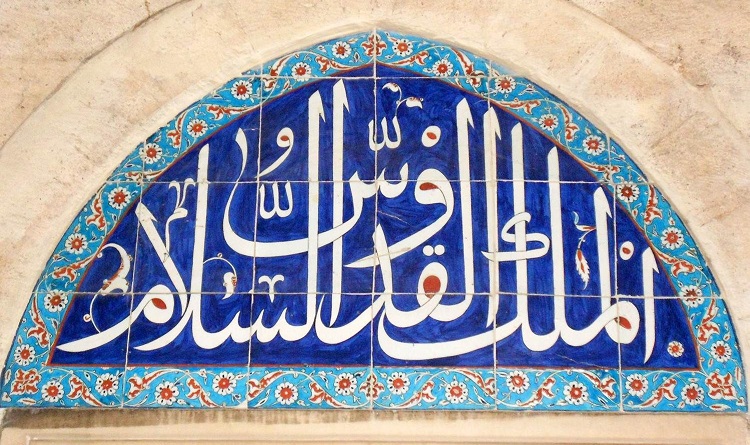 الملك القدوس السلام